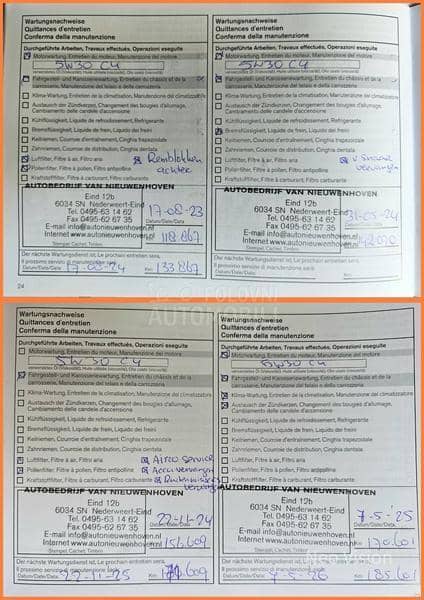 Wartungsnachweise
Quittances d'entretien
Conferma della manutenzione
Durchgeführte Arbeiten, Travaux effectués, Operazioni eseguite
Motorwartung, Entretien du moteur, Manutenzione del motore
5W30 C4
Fahrgestell- und Karosseriewartung, Entretien du châssis et de la carrosserie, Manutenzione del telaio e della carrozzeria
Klima-Wartung, Entretien de la climatisation, Manutenzione del climatizzatore
Austausch der Zündkerzen, Changement des bougies d'allumage,
Cambiamento delle candele d'accensione
Kühlflüssigkeit, Liquide de refroidissement, Refrigerante
Bremsflüssigkeit, Liquide de frein, Liquido dei freni
Keilriemen, Courroie d'entraînement, Cinghia trapezoidale
Zahnriemen, Courroie de distribution, Cinghia dentata
Luftfilter, Filtre à air, Filtro aria
Remblokken
achter
Pollenfilter, Filtre à pollen, Filtro antipolline
Kraftstoffilter, Filtre à carburant, Filtro carburante
AUTOBEDRIJF VAN NIEUWENHOVEN
Eind 12b
6034 SN Nederweert-Eind
Tel. 0495-63 14 62
Fax 0495-62 67 35
E-mail info@autonieuwenhoven.nl
Internet www.autonieuwenhoven.nl
17-08-23
Datum/Date/Data
Km: 118.867
Stempel, Cachet, Timbro
Der nächste Wartungsdienst ist, Le prochain entretien sera,
Il prossimo servizio di manutenzione sarà:
Datum/Date/Data: 17-08-24 Km: 133.867
24
Wartungsnachweise
Quittances d'entretien
Conferma della manutenzione
Durchgeführte Arbeiten, Travaux effectués, Operazioni eseguite
Motorwartung, Entretien du moteur, Manutenzione del motore
5W30 C4
Fahrgestell- und Karosseriewartung, Entretien du châssis et de la carrosserie, Manutenzione del telaio e della carrozzeria
Klima-Wartung, Entretien de la climatisation, Manutenzione del climatizzatore
Austausch der Zündkerzen, Changement des bougies d'allumage,
Cambiamento delle candele d'accensione
Kühlflüssigkeit, Liquide de refroidissement, Refrigerante
Bremsflüssigkeit, Liquide de frein, Liquido dei freni
Keilriemen, Courroie d'entraînement, Cinghia trapezoidale
Zahnriemen, Courroie de distribution, Cinghia dentata
Luftfilter, Filtre à air, Filtro aria
Pollenfilter, Filtre à pollen, Filtro antipolline
Kraftstoffilter, Filtre à carburant, Filtro carburante
AUTOBEDRIJF VAN NIEUWENHOVEN
Eind 12b
6034 SN Nederweert-Eind
Tel. 0495-63 14 62
Fax 0495-62 67 35
E-mail info@autonieuwenhoven.nl
Internet www.autonieuwenhoven.nl
31-05-24
Stempel, Cachet, Timbro
Der nächste Wartungsdienst ist, Le prochain entretien sera,
Il prossimo servizio di manutenzione sarà:
Datum/Date/Data: Km:
POLOVNI
AUTOMOBILI
Wartungsnachweise
Quittances d'entretien
Conferma della manutenzione
Durchgeführte Arbeiten, Travaux effectués, Operazioni eseguite
Motorwartung, Entretien du moteur, Manutenzione del motore
5W30 C4
Fahrgestell- und Karosseriewartung, Entretien du châssis et de la carrosserie, Manutenzione del telaio e della carrozzeria
Klima-Wartung, Entretien de la climatisation, Manutenzione del climatizzatore
Austausch der Zündkerzen, Changement des bougies d'allumage,
Cambiamento delle candele d'accensione
Kühlflüssigkeit, Liquide de refroidissement, Refrigerante
Bremsflüssigkeit, Liquide de frein, Liquido dei freni
Keilriemen, Courroie d'entraînement, Cinghia trapezoidale
Zahnriemen, Courroie de distribution, Cinghia dentata
Luftfilter, Filtre à air, Filtro aria
Airco Service
Pollenfilter, Filtre à pollen, Filtro antipolline
Accu vervangen
Kraftstoffilter, Filtre à carburant, Filtro carburante
AUTOBEDRIJF VAN NIEUWENHOVEN
Eind 12b
6034 SN Nederweert-Eind
Tel. 0495-63 14 62
Fax 0495-62 67 35
E-mail info@autonieuwenhoven.nl
Internet www.autonieuwenhoven.nl
22-11-24
Datum/Date/Data
Km: 156.609
Stempel, Cachet, Timbro
Der nächste Wartungsdienst ist, Le prochain entretien sera,
Il prossimo servizio di manutenzione sarà:
Datum/Date/Data: 22-11-25 Km:
Wartungsnachweise
Quittances d'entretien
Conferma della manutenzione
Durchgeführte Arbeiten, Travaux effectués, Operazioni eseguite
Motorwartung, Entretien du moteur, Manutenzione del motore
5W30 C4
Fahrgestell- und Karosseriewartung, Entretien du châssis et de la carrosserie, Manutenzione del telaio e della carrozzeria
Klima-Wartung, Entretien de la climatisation, Manutenzione del climatizzatore
Austausch der Zündkerzen, Changement des bougies d'allumage,
Cambiamento delle candele d'accensione
Kühlflüssigkeit, Liquide de refroidissement, Refrigerante
Bremsflüssigkeit, Liquide de frein, Liquido dei freni
Keilriemen, Courroie d'entraînement, Cinghia trapezoidale
Zahnriemen, Courroie de distribution, Cinghia dentata
Luftfilter, Filtre à air, Filtro aria
Pollenfilter, Filtre à pollen, Filtro antipolline
Kraftstoffilter, Filtre à carburant, Filtro carburante
AUTOBEDRIJF VAN NIEUWENHOVEN
Eind 12b
6034 SN Nederweert-Eind
Tel. 0495-63 14 62
Fax 0495-62 67 35
E-mail info@autonieuwenhoven.nl
Internet www.autonieuwenhoven.nl
7-5-'25
Datum/Date/Data
Km: 170.601
Stempel, Cachet, Timbro
Der nächste Wartungsdienst ist, Le prochain entretien sera,
Il prossimo servizio di manutenzione sarà:
Datum/Date/Data: 7-5-'26 Km: 185.601